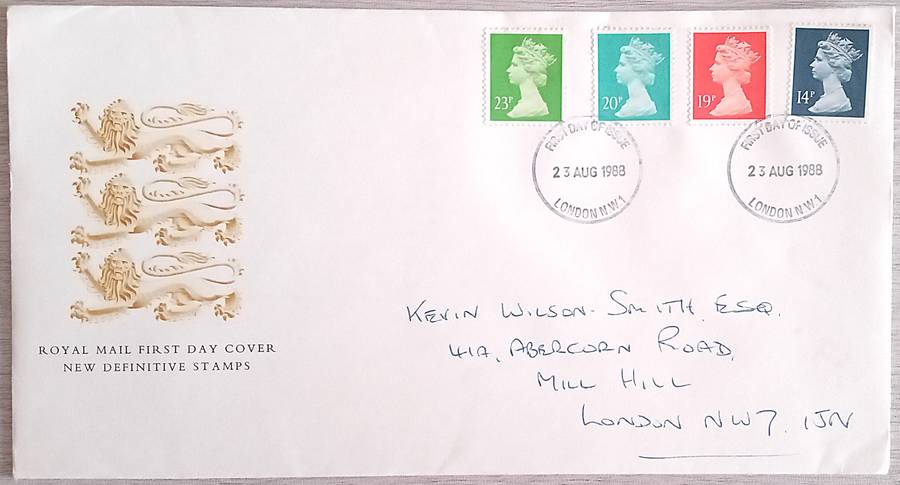 23P
20P
19P
14P
FIRST DAY OF ISSUE
23 AUG 1988
LONDON N.W.1
FIRST DAY OF ISSUE
23 AUG 1988
LONDON N.W.1
ROYAL MAIL FIRST DAY COVER
NEW DEFINITIVE STAMPS
KEVIN WILSON-SMITH ESQ.
41A, ABERCORN ROAD,
MILL HILL
LONDON NW7. 1JN